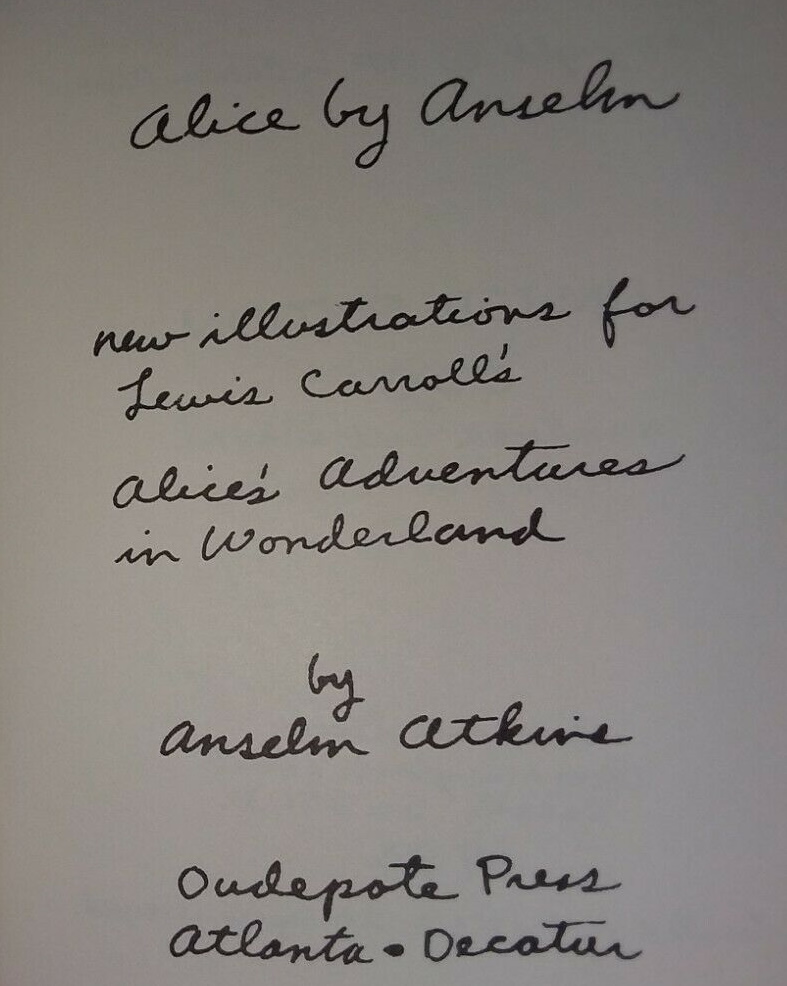 Alice by Anselm
new illustrations for
Lewis Carroll's
Alice's Adventures
in Wonderland
by
Anselm Atkins
Oudepote Press
Atlanta • Decatur